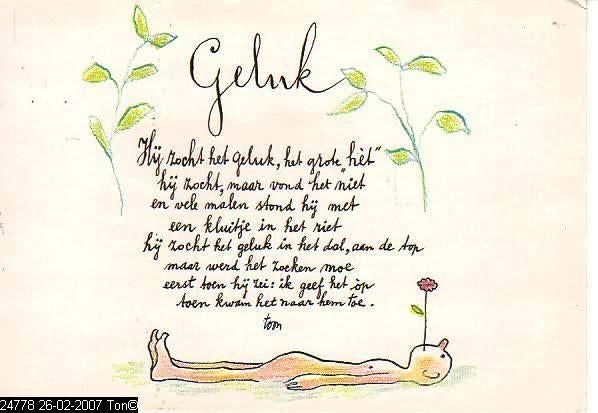 Geluk
Hij zocht het geluk, het grote "hèt"
hij zocht, maar vond het niet
en vele malen stond hij met
een kluitje in het riet
hij zocht het geluk in het dal, aan de top
maar werd het zoeken moe
eerst toen hij zei: ik geef het òp
toen kwam het naar hem toe.
tom
24778 26-02-2007 Ton©